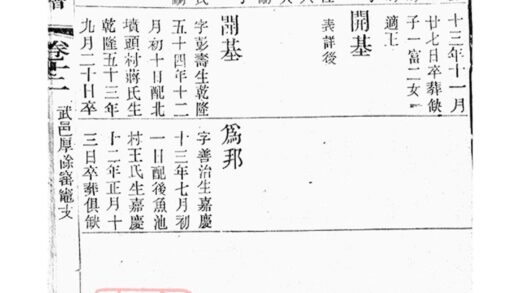 十三年十一月
廿七日卒葬缺
子一富二女
適王
開基
表詳後
基
字彭壽生乾隆
五十四年十二
月初十日配北
墳頭村蔣氏生
乾隆五十三年
九月二十日卒
爲邦
字善治生嘉慶
十三年七月初
一日配後魚池
村王氏生嘉慶
十二年正月十
三日卒葬俱缺
卷二
武邑厚餘窰竈支